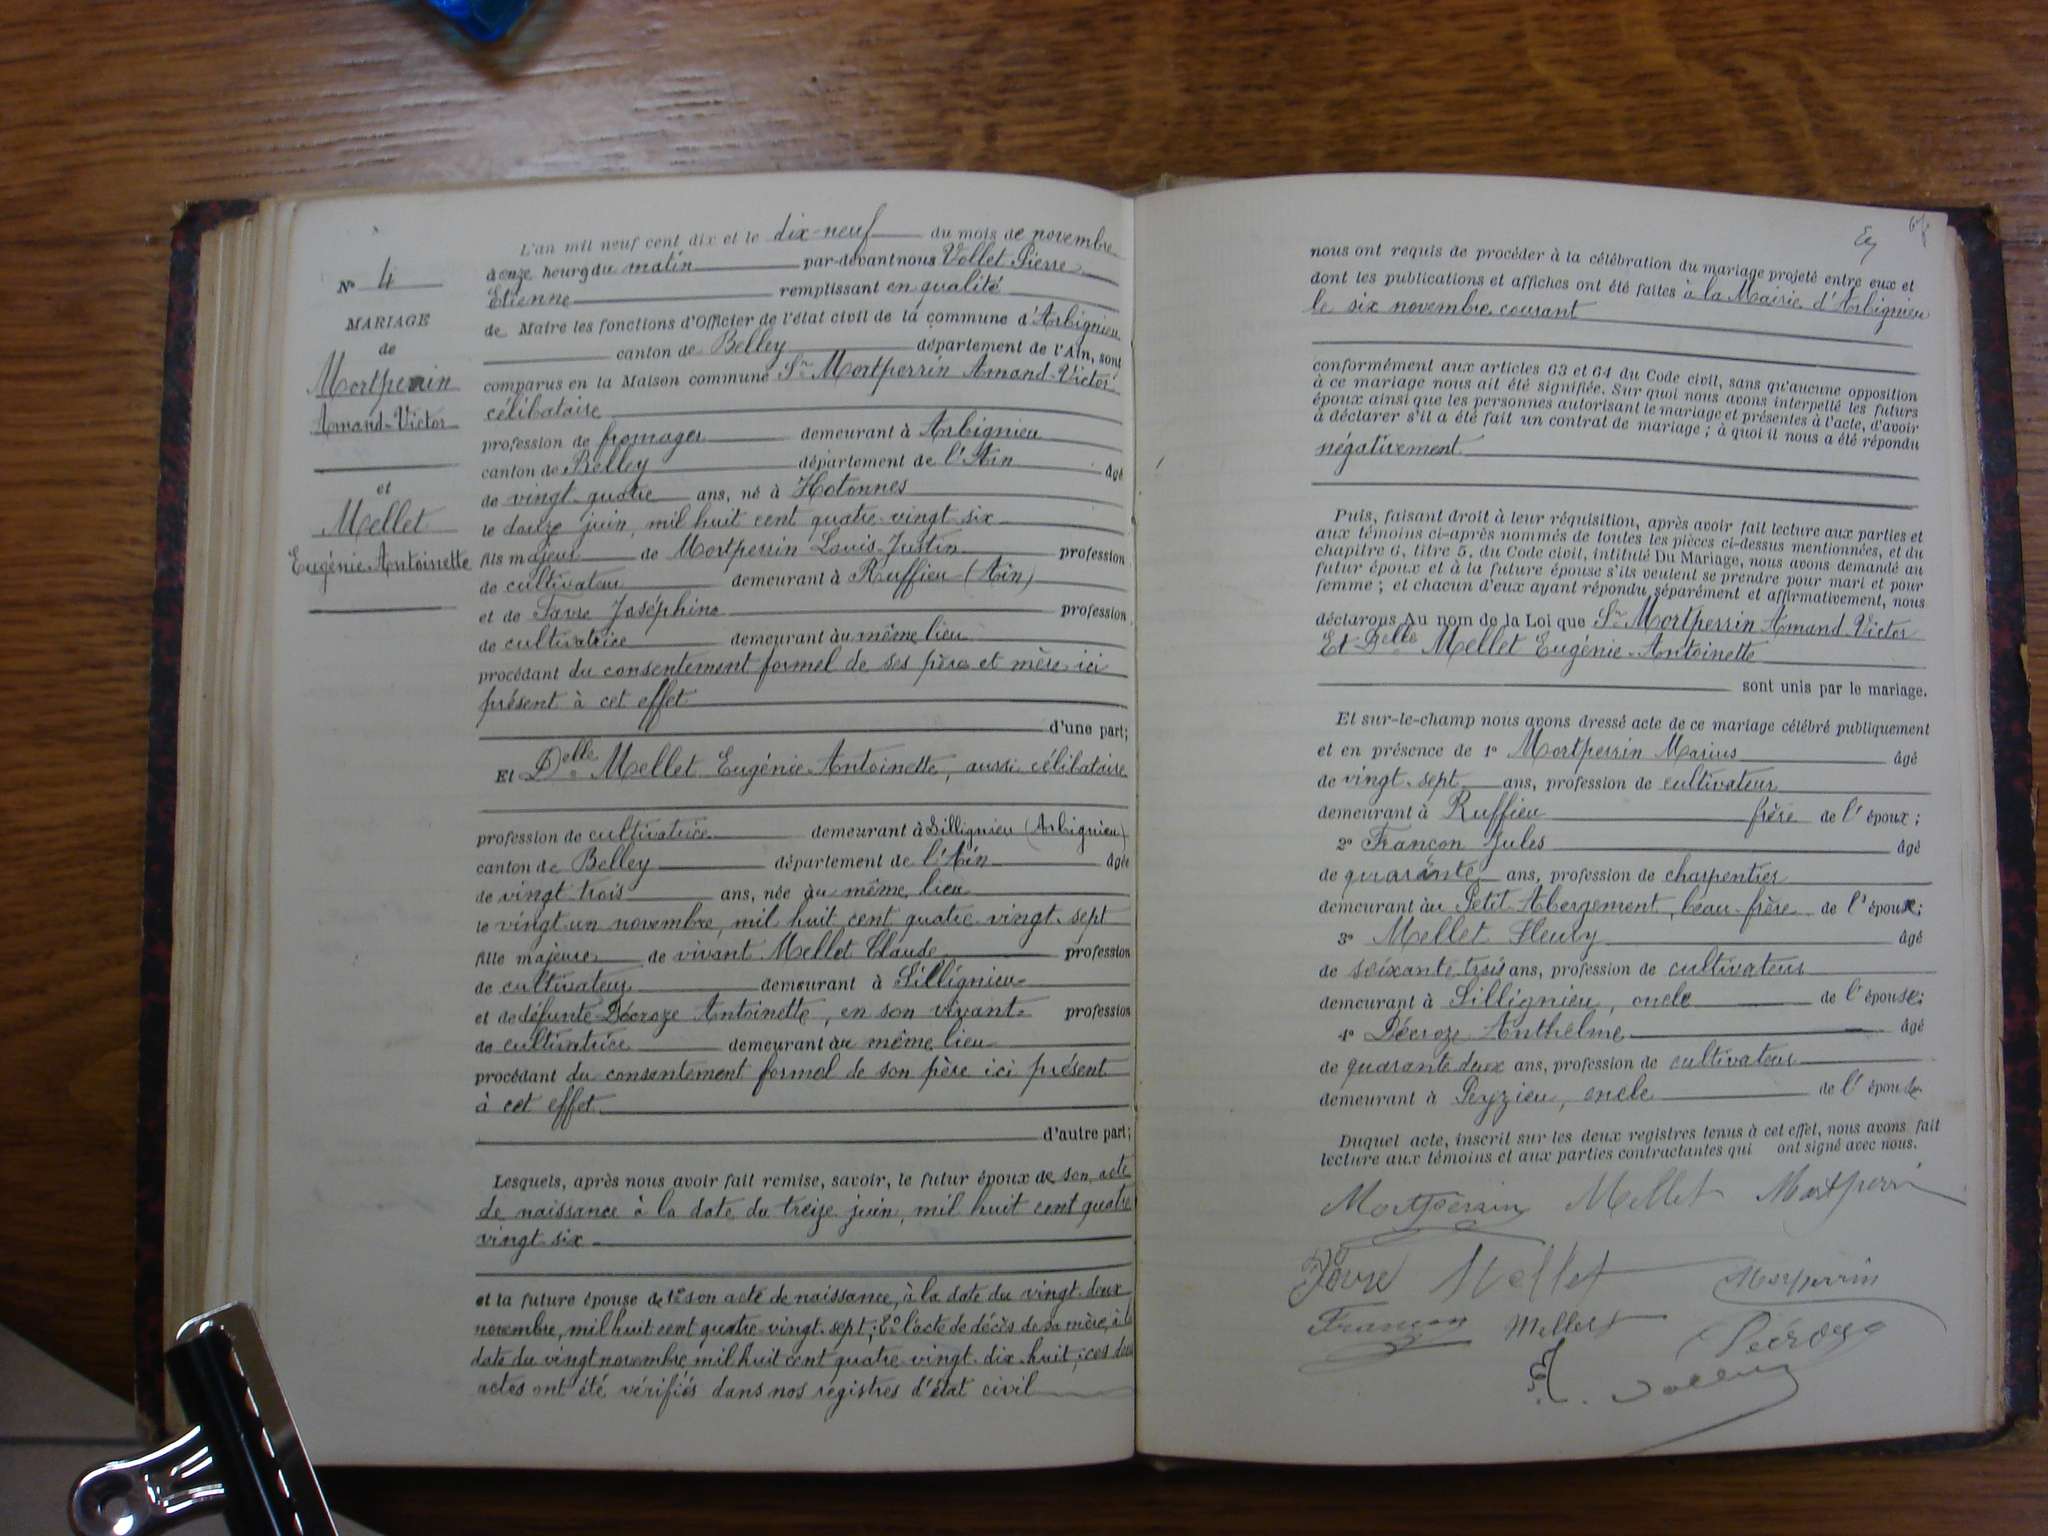 L'an mil neuf cent dix et le dix-neuf du mois de novembre
à onze heures du matin par-devant nous Vollet Pierre
Etienne remplissant en qualité
de Maire les fonctions d'Officier de l'état civil de la commune d'Arbignieu
canton de Belley département de l'Ain, sont
comparus en la Maison commune Sr Mortperrin Amand-Victor
célibataire
profession de fromager demeurant à Arbignieu
canton de Belley département de l'Ain âgé
de vingt-quatre ans, né à Hotonnes
le douze juin, mil huit cent quatre-vingt six
fils majeur de Mortperrin Louis-Justin profession
de cultivateur demeurant à Ruffieu (Ain)
et de Favre Joséphine profession
de cultivatrice demeurant au même lieu
procédant du consentement formel de ses père et mère ici
présent à cet effet
d'une part;
Et Delle Mellet Eugénie-Antoinette, aussi célibataire
profession de cultivatrice demeurant à Sillignieu (Arbignieu)
canton de Belley département de l'Ain âgée
de vingt-trois ans, née au même lieu
le vingt-un novembre, mil huit cent quatre-vingt-sept
fille majeure de vivant Mellet Claude profession
de cultivateur demeurant à Sillignieu
et de défunte Décroze Antoinette, en son vivant profession
de cultivatrice demeurant au même lieu
procédant du consentement formel de son père ici présent
à cet effet
d'autre part;
Lesquels, après nous avoir fait remise, savoir, le futur époux de son acte
de naissance à la date du treize juin, mil huit cent quatre
vingt-six
et la future épouse de 1° son acte de naissance, à la date du vingt-deux
novembre, mil huit cent quatre-vingt-sept; 2° l'acte de décès de sa mère, à la
date du vingt novembre mil huit cent quatre-vingt-dix-huit; ces deux
actes ont été vérifiés dans nos registres d'état civil
N° 4
MARIAGE
de
Mortperrin
Amand-Victor
et
Mellet
Eugénie-Antoinette
nous ont requis de procéder à la célébration du mariage projeté entre eux et
dont les publications et affiches ont été faites à la Mairie d'Arbignieu
le six novembre courant
conformément aux articles 63 et 64 du Code civil, sans qu'aucune opposition
à ce mariage nous ait été signifiée. Sur quoi nous avons interpellé les futurs
époux ainsi que les personnes autorisant le mariage et présentes à l'acte, d'avoir
à déclarer s'il a été fait un contrat de mariage; à quoi il nous a été répondu
négativement
Puis, faisant droit à leur réquisition, après avoir fait lecture aux parties et
aux témoins ci-après nommés de toutes les pièces ci-dessus mentionnées, et du
chapitre 6, titre 5, du Code civil, intitulé Du Mariage, nous avons demandé au
futur époux et à la future épouse s'ils veulent se prendre pour mari et pour
femme; et chacun d'eux ayant répondu séparément et affirmativement, nous
déclarons Au nom de la Loi que Sr Mortperrin Amand Victor
Et Delle Mellet Eugénie-Antoinette
sont unis par le mariage.
Et sur-le-champ nous avons dressé acte de ce mariage célébré publiquement
et en présence de 1° Mortperrin Marius âgé
de vingt-sept ans, profession de cultivateur
demeurant à Ruffieu frère de l'époux;
2° Françon Jules âgé
de quarante ans, profession de charpentier
demeurant au Petit-Abergement, beau-frère de l'époux;
3° Mellet Fleury âgé
de soixante-trois ans, profession de cultivateur
demeurant à Sillignieu, oncle de l'épouse;
4° Décroze Anthelme âgé
de quarante-deux ans, profession de cultivateur
demeurant à Peyzieu, oncle de l'épouse
Duquel acte, inscrit sur les deux registres tenus à cet effet, nous avons fait
lecture aux témoins et aux parties contractantes qui ont signé avec nous.
Mortperrin Mellet Mortperrin
Favre Mellet Morperrin
Françon Mellet Décroze
Vollet